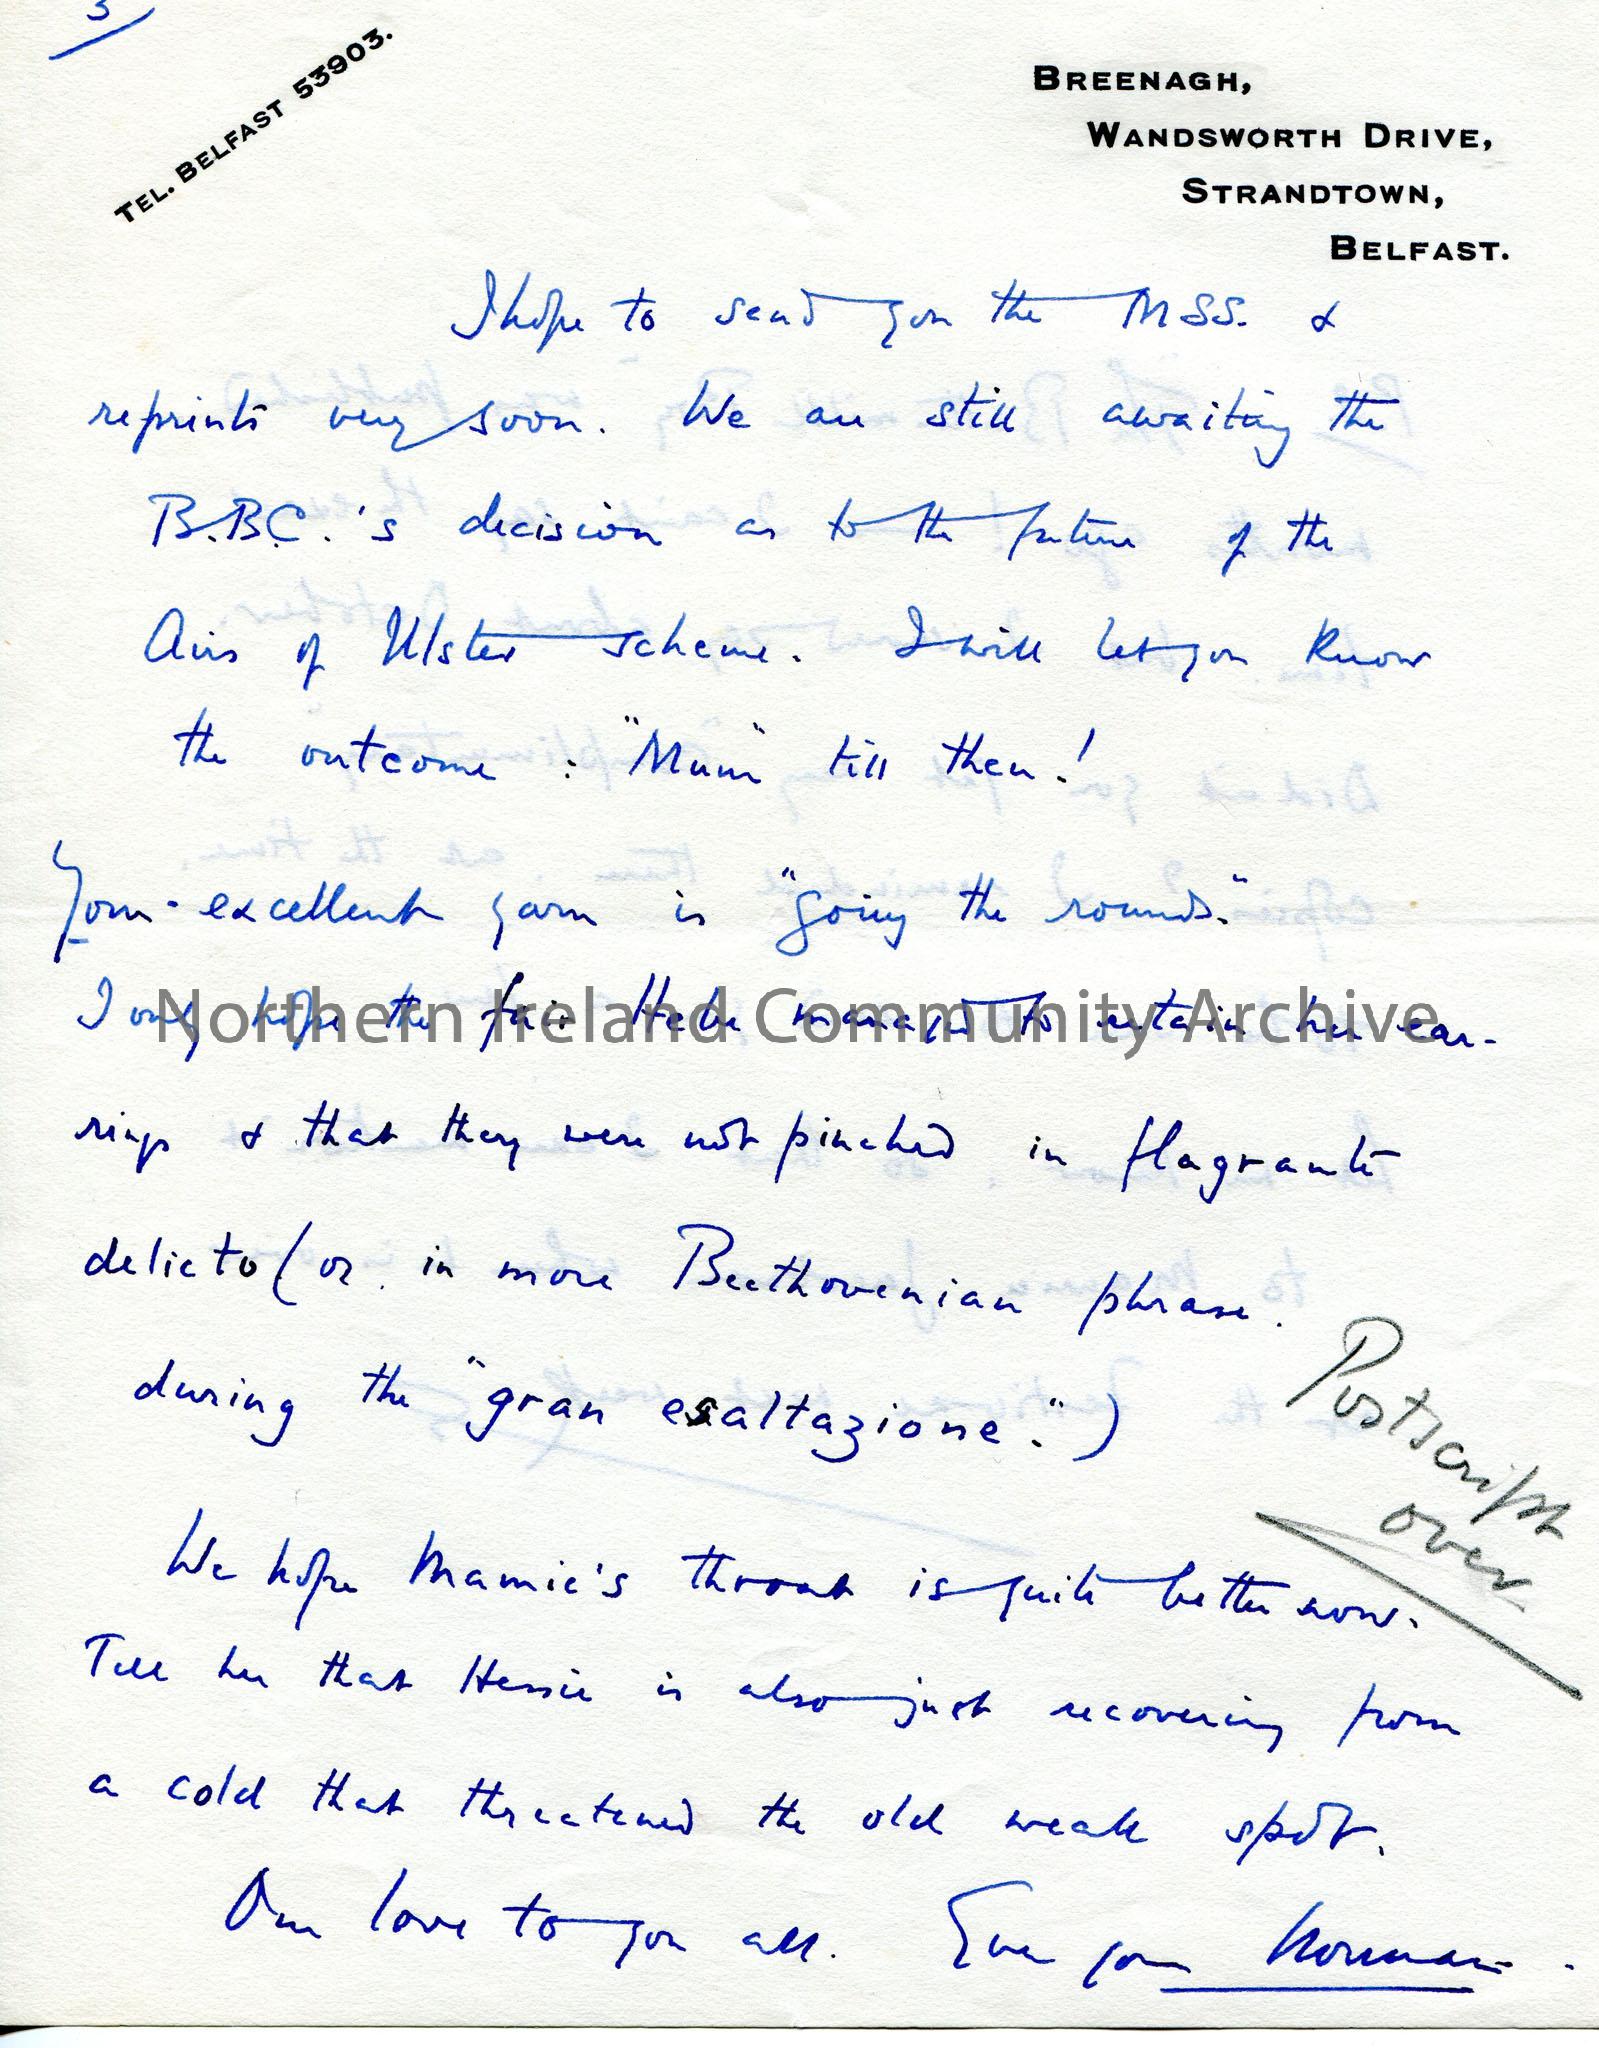 3
TEL. BELFAST 53903.
BREENAGH,
WANDSWORTH DRIVE,
STRANDTOWN,
BELFAST.
I hope to send you the MSS. &
reprints very soon. We are still awaiting the
B.B.C.'s decision as to the future of the
Airs of Ulster scheme. I will let you know
the outcome : "Mum" till then!
Your excellent yarn is "going the rounds."
I only hope the fair Hebe managed to retain her ear-
rings & that they were not pinched in flagrante
delicto (or in more Beethovenian phrase.
during the "gran esaltazione".)
Postscript
over
We hope Mamie's throat is quite better now.
Tell her that Hessie is also just recovering from
a cold that threatened the old weak spot.
Our love to you all. Ever yours Norman.
Northern Ireland Community Archive